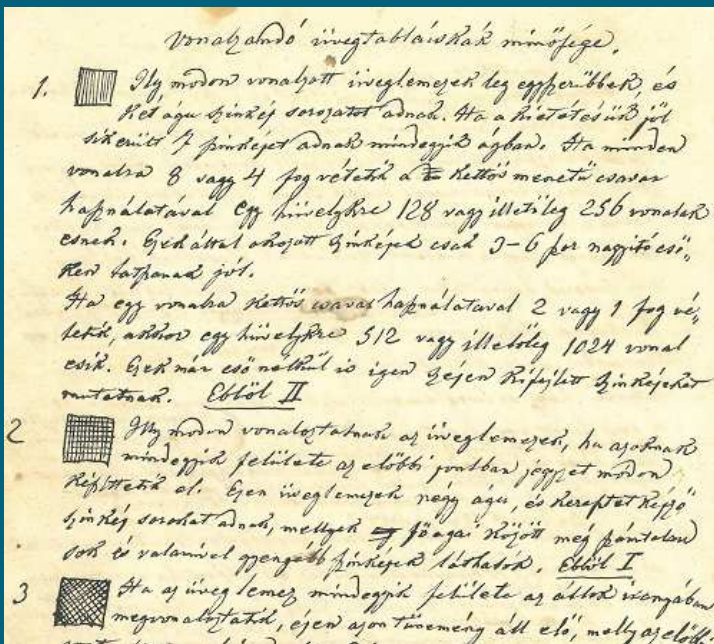 vonalzandó üvegtábláiskák minősége.
1. Ily modon vonalzott üveglemezek leg egyszerübbek, és
két águ szinkép sorozatot adnak. Ha a kietetésük jól
sikerült 7 szinképet adnak mindegyik ágban. Ha minden
vonalra 8 vagy 4 fog vétetik a kettős menetű csavar
használatával egy hüvelykre 128 vagy illetőleg 256 vonalak
esnek. Ezek által okozott szinképek csak 3-6 szor nagyitó cső„
ken látszanak jól.
Ha egy vonalra kettős csavar használatával 2 vagy 1 fog vé„
tetik, akkor egy hüvelykre 512 vagy illetőleg 1024 vonal
esik. Ezek már cső nélkül is igen szépen kifejlett szinképeket
mutatnak. Ebből II
2 Ily modon vonaloztatnak az üveglemezek, ha azoknak
mindegyik felülete az előbbi pontban jegyzett modon
készíttetik el. Ezen üveglemezek négy águ, és keresztet képző
szinkép sorokat adnak, mellyek főágai között még számtalan
sok és valamivel gyengébb szinképek láthatók. Ebből I
3 Ha az üveglemez mindegyik felülete az átlók irányában
megvonaloztatik, ezen azon tünemény áll elő, melly az előbb